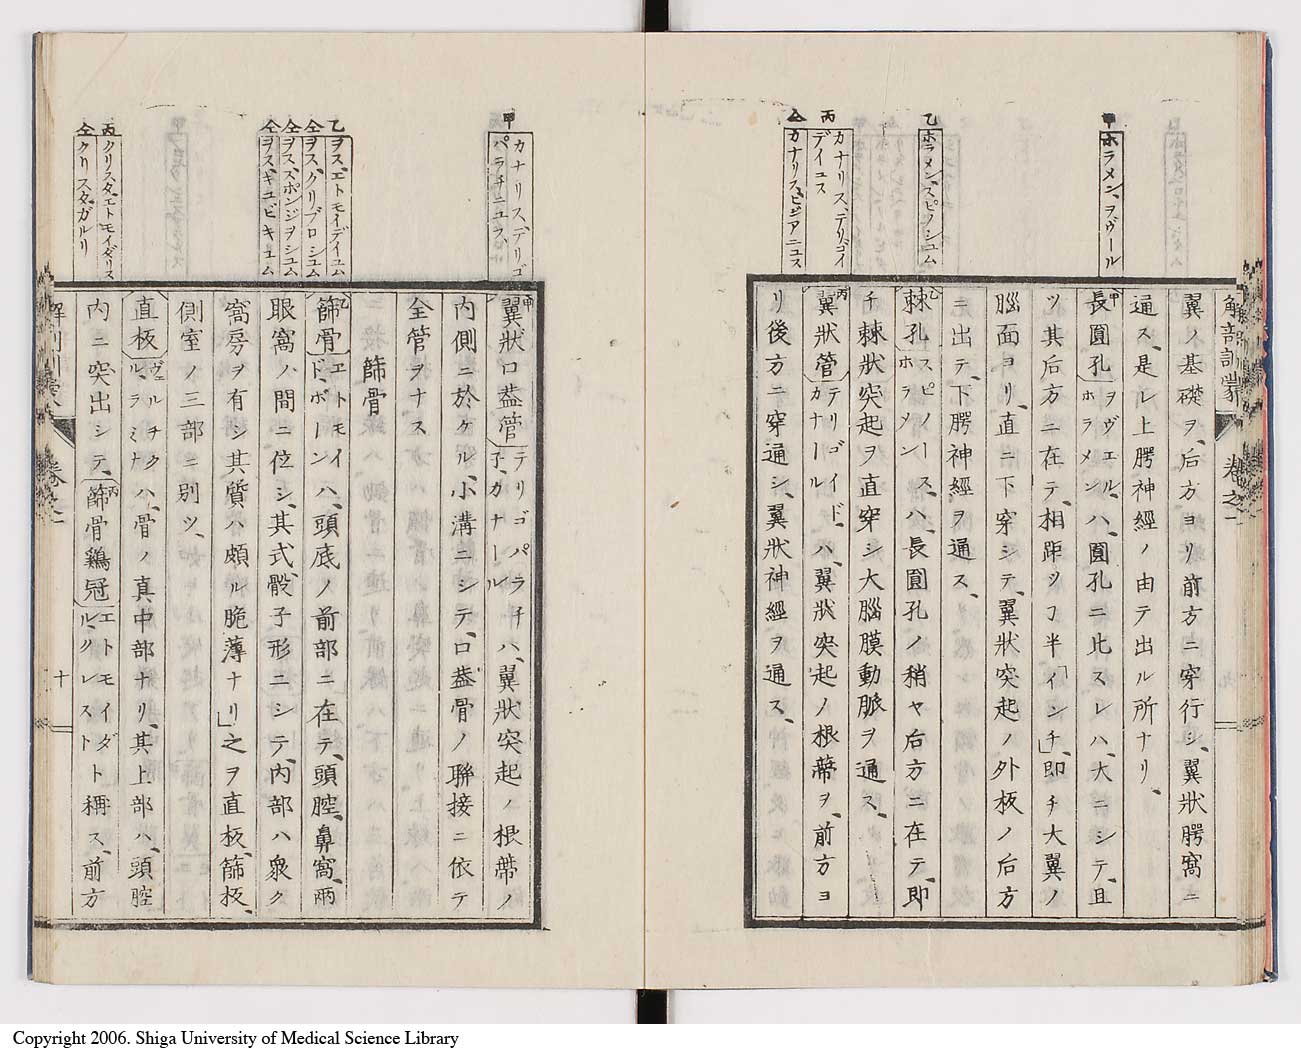 解剖訓蒙
卷之一
甲 ホラメン、ヲヴール
乙 ホラメン、スピノシユム
丙 カナリス、デリゴイ
デイユス
仝 カナリス、ビジアニユス
翼ノ基礎ヲ、后方ヨリ前方ニ穿行シ、翼狀腭窩ニ
通ス、是レ上腭神經ノ由テ出ル所ナリ、
甲長圓孔 ヲヴエル、ホラメン ハ、圓孔ニ比スレハ、大ニシテ、且
ツ其后方ニ在テ、相距ツヿ半「インチ」、即チ大翼ノ
腦面ヨリ、直ニ下穿シテ、翼狀突起ノ外板ノ后方
ニ出テ、下腭神經ヲ通ス、
乙棘孔 スピノース、ホラメン ハ、長圓孔ノ稍ヤ后方ニ在テ、即
チ棘狀突起ヲ直穿シ大腦膜動脈ヲ通ス、
丙翼狀管 テリゴイド、カナール ハ、翼狀突起ノ根蔕ヲ、前方ヨ
リ後方ニ穿通シ、翼狀神經ヲ通ス、
甲 カナリス、デリゴ
パラチニユス
乙 ヲス、エトモイデイユム
仝 ヲス、クリブロシユム
仝 ヲス、スポンジヲシユム
仝 ヲス、キユビキユム
丙 クリスタ、エトモイダリス
仝 クリスタ、ガルリ
甲翼狀口蓋管 テリゴパラチ子、カナール ハ、翼狀突起ノ根蔕ノ
内側ニ於ケル、小溝ニシテ、口蓋骨ノ聯接ニ依テ
全管ヲナス
篩骨
乙篩骨 エトモイド、ボーン ハ、頭底ノ前部ニ在テ、頭腔、鼻窩、兩
眼窩ノ間ニ位シ、其式骰子形ニシテ、内部ハ衆ク
窩房ヲ有シ其質ハ頗ル脆薄ナリ」之ヲ直板、篩板、
側室ノ三部ニ別ツ、
直板 ヴエルチクル、ラミナ ハ、骨ノ真中部ナリ、其上部ハ、頭腔
内ニ突出シテ、丙篩骨鷄冠 エトモイダル、クレスト ト稱ス、前方
解剖訓蒙
卷之一
十
Copyright 2006. Shiga University of Medical Science Library